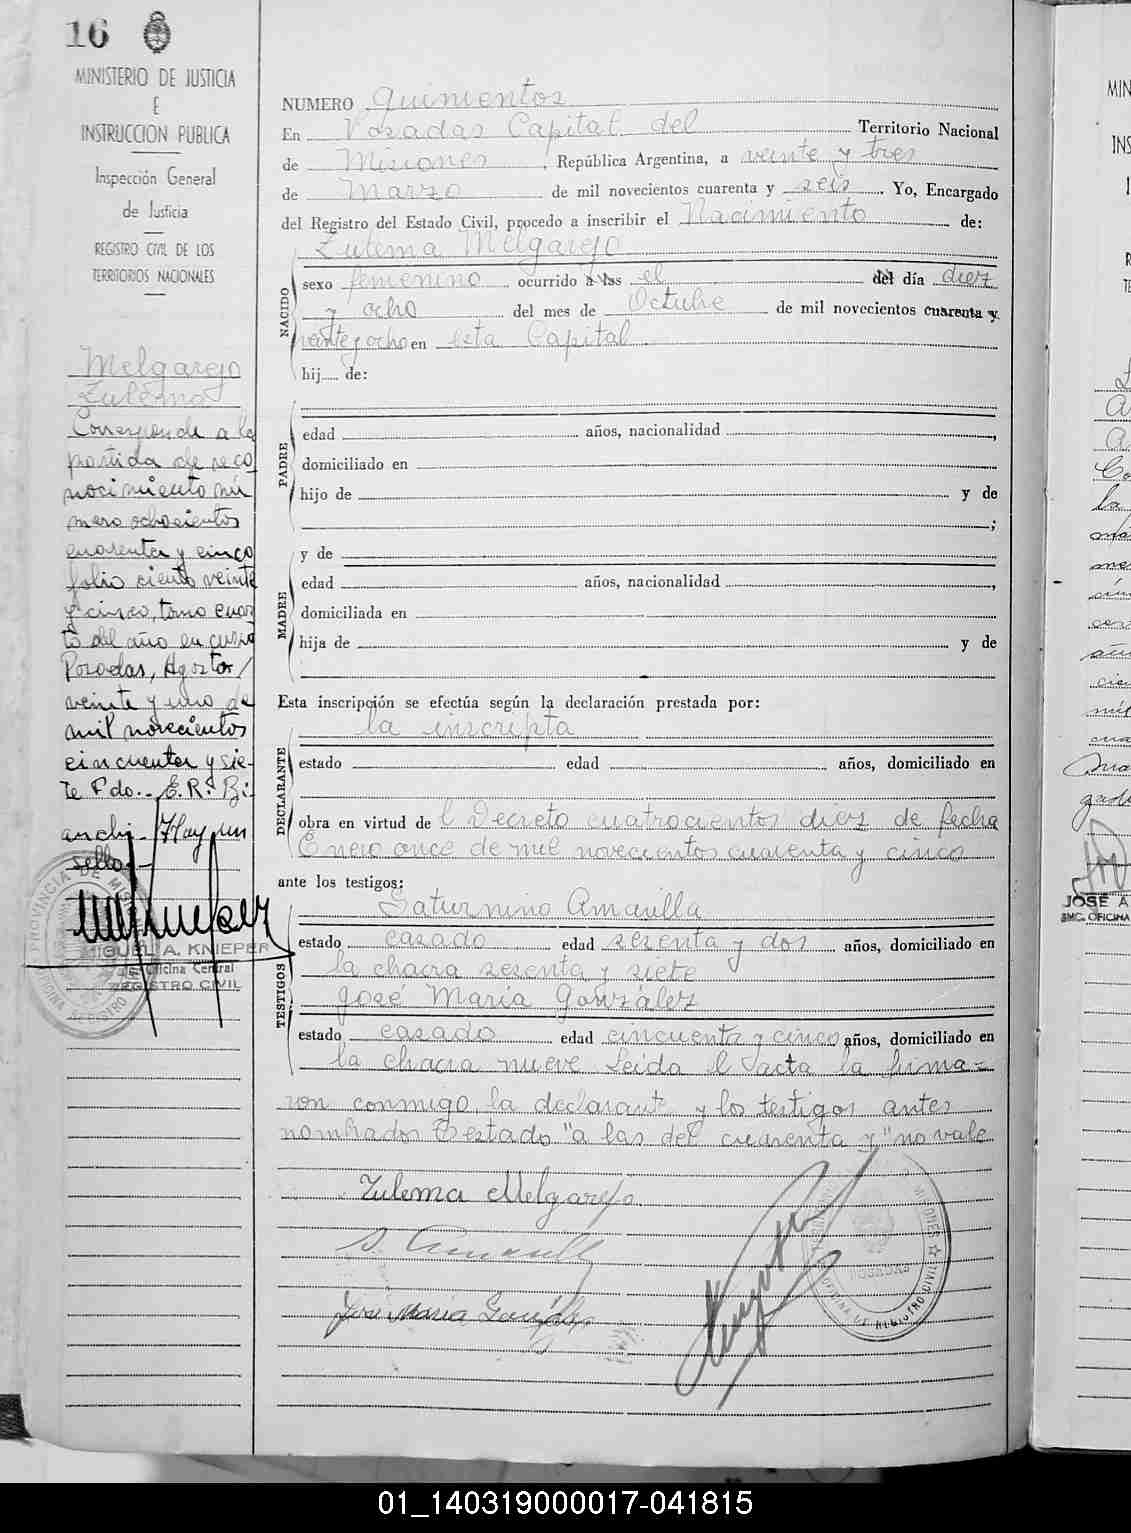 16
MINISTERIO DE JUSTICIA
E
INSTRUCCION PUBLICA
Inspección General
de Justicia
REGISTRO CIVIL DE LOS
TERRITORIOS NACIONALES
Melgarejo
Zulema
Corresponde a la
partida de reco
nocimiento nú
mero ochocientos
cuarenta y cinco
folio ciento veinte
y cinco, tomo cuar
to del año en curso
Posadas, Agosto/
veinte y uno de
mil novecientos
cincuenta y sie-
te Fdo.- E.R. Bi
anchi - Hay un
sello -
MIGUEL A. KNIEPER
Oficina Central
REGISTRO CIVIL
NUMERO Quinientos
En Posadas Capital del Territorio Nacional
de Misiones, República Argentina, a veinte y tres
de Marzo de mil novecientos cuarenta y seis. Yo, Encargado
del Registro del Estado Civil, procedo a inscribir el Nacimiento de:
Zulema Melgarejo
NACIDO
sexo femenino ocurrido a las el del día diez
y ocho del mes de Octubre de mil novecientos cuarenta y
veinte y ocho en esta Capital
hij de:
PADRE
edad años, nacionalidad ,
domiciliado en
hijo de y de
;
MADRE
y de
edad años, nacionalidad ,
domiciliada en
hija de y de
Esta inscripción se efectúa según la declaración prestada por:
DECLARANTE
la inscripta
estado edad años, domiciliado en
obra en virtud de l Decreto cuatrocientos diez de fecha
Enero once de mil novecientos cuarenta y cinco
ante los testigos:
TESTIGOS
Saturnino Amarilla
estado casado edad sesenta y dos años, domiciliado en
la chacra sesenta y siete
José María González
estado casado edad cincuenta y cinco años, domiciliado en
la chacra nueve Leida el acta la firma-
ron conmigo, la declarante y los testigos antes
nombrados Testado "a las del cuarenta y" no vale
Zulema Melgarejo.
S. Amarilla
José Maria González
POSADAS
01_140319000017-041815
MIN
INS
JOSE A